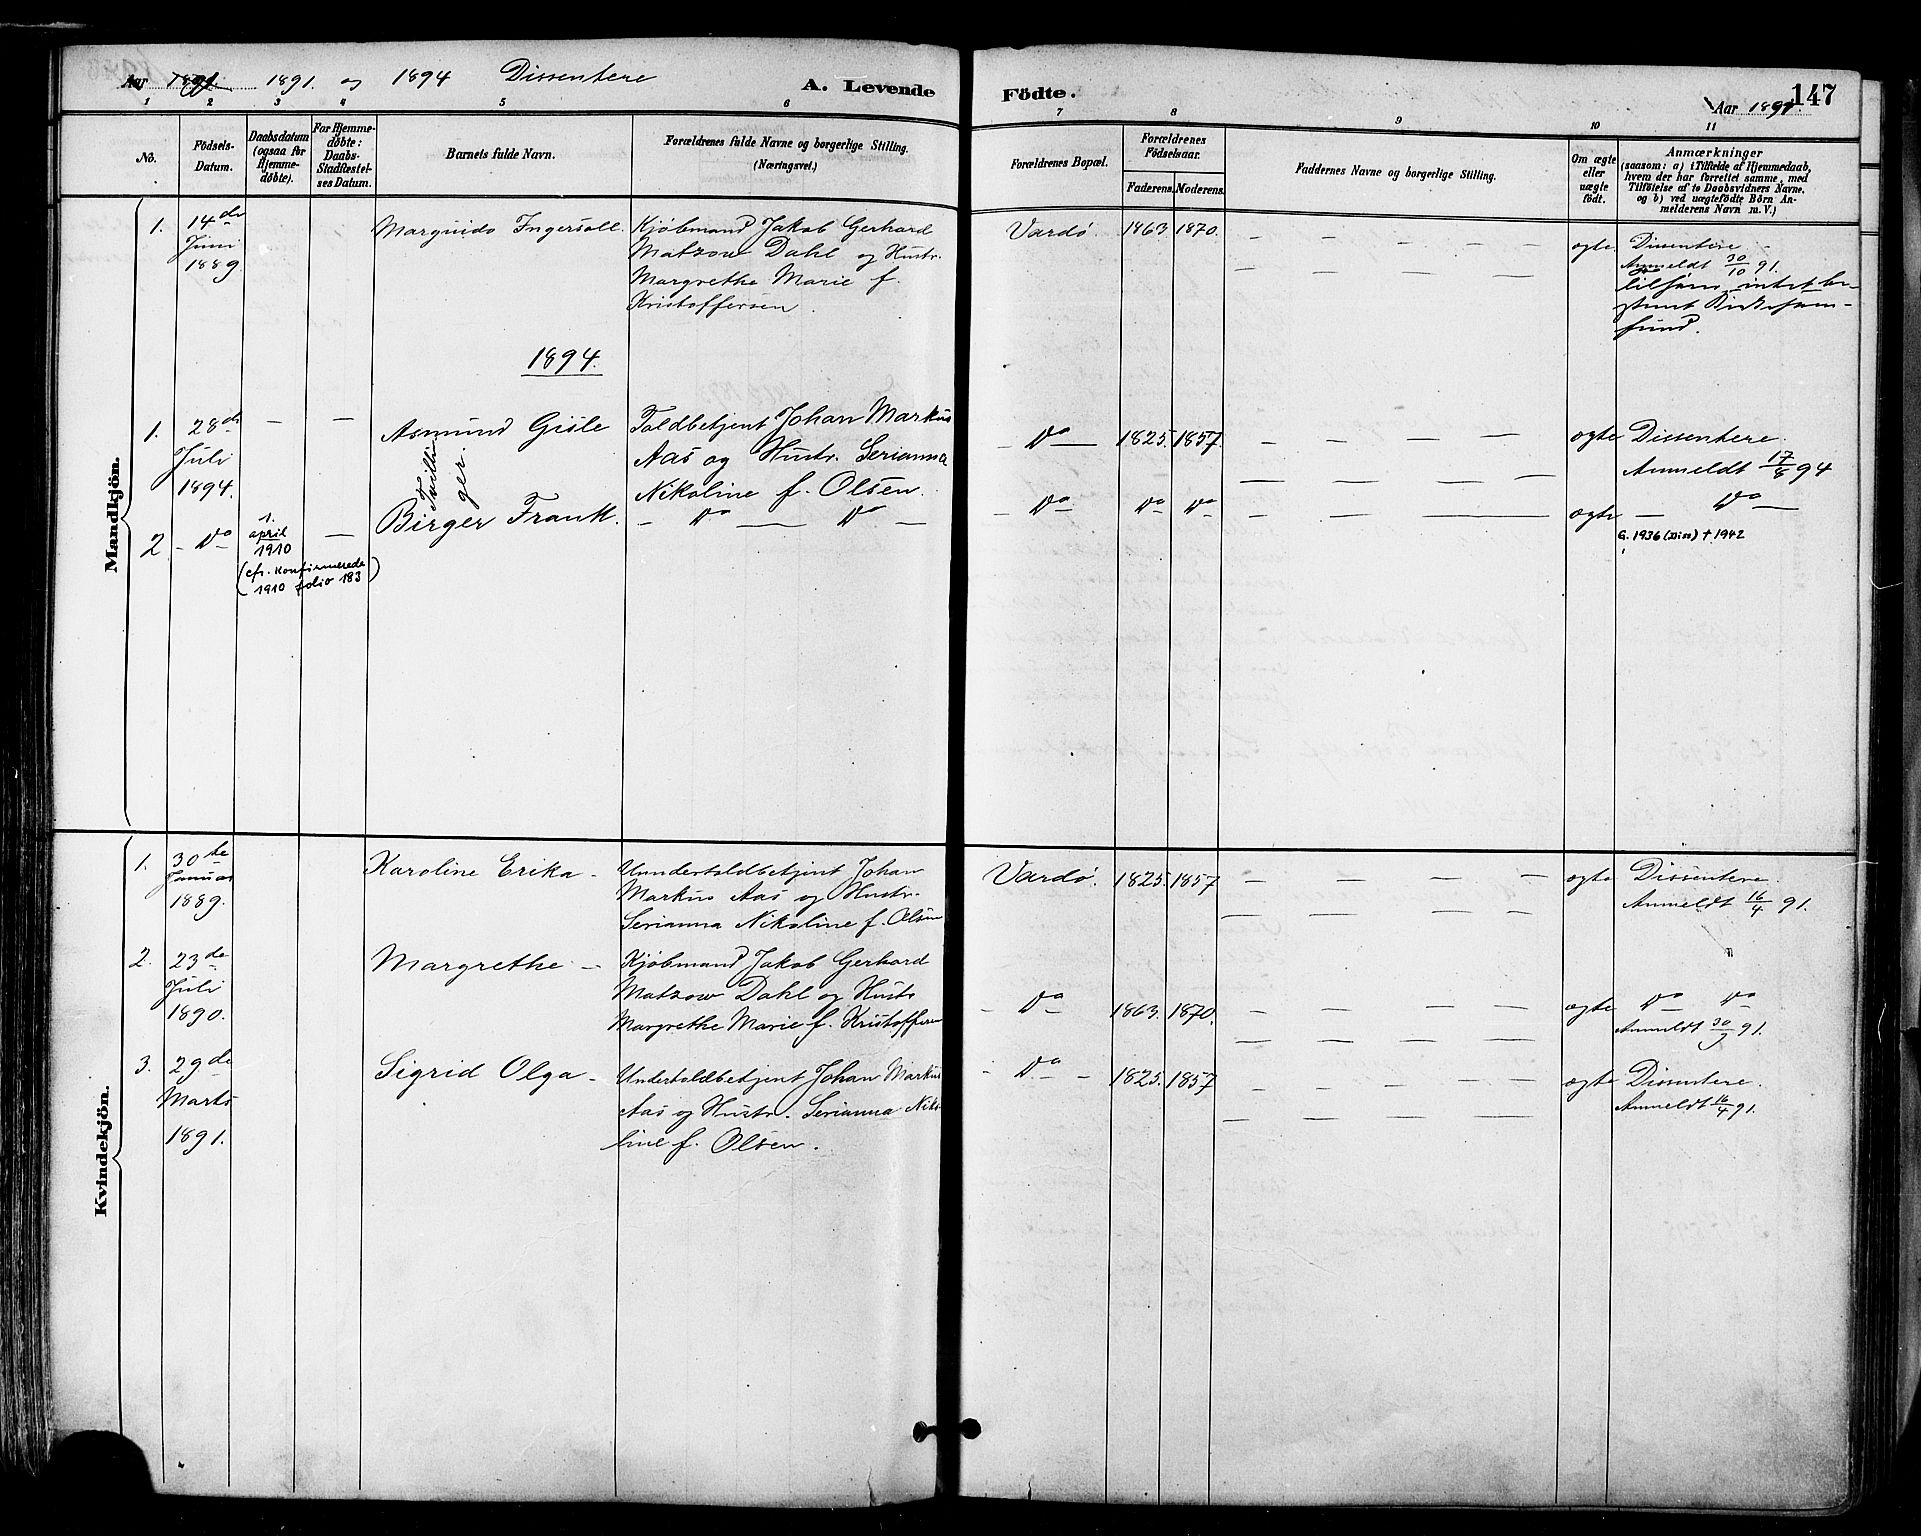 Aar 1891. 1891. og 1894 Dissentere
A. Levende Födte.
147
Aar 1891.
1 2 3 4 5 6 7 8 9 10 11
No.
Födsels-
Datum.
Daabsdatum
(ogsaa for
Hjemme-
döbte).
For Hjemme-
döbte:
Daabs-
Stadfæstel-
ses Datum.
Barnets fulde Navn.
Forældrenes fulde Navne og borgerlige Stilling.
(Næringsvei.)
Forældrenes Bopæl.
Forældrenes
Födselsaar.
Faderens. Moderens.
Faddernes Navne og borgerlige Stilling.
Om ægte
eller
uægte
født.
Anmærkninger
(saasom: a) i Tilfælde af Hjemmedaab,
hvem der har forrettet samme, med
Tilföielse af to Daabsvidners Navne.
og b) ved uægtefödte Börn An-
melderens Navn m. V.)
Mandkjön.
1. 14de Juni 1889. Marguido Ingersoll. Kjøbmand Jakob Gerhard
Matzow Dahl og Hustr.
Margrethe Marie f.
Kristoffersen.
Vardø 1863. 1870. — — — — — ægte Dissentere -
Anmeldt 30/10 91.
tilhører intet be-
stemt Kirkesam-
fund.
1894.
1. 28de Juli 1894. — — Asmund Gisle Toldbetjent Johan Markus
Aas og Hustr. Serianna
Nikoline f. Olsen.
- Do — 1825. 1857. — — — — — ægte Dissentere.
Anmeldt 17/8 94
Tvillinger.
2 - Do - 1. april 1910 — Birger Frank. - Do — Do —
(cfr. Konfirmerede
1910 folio 183)
- Do Do Do — — — — ægte — Do —
G. 1936 (Diss) † 1942
Kvindekjön.
1. 30te Januar 1889. Karoline Erika - Unndertoldbetjent Johan
Markus Aas og Hustr.
Serianna Nikoline f. Olsen
Vardø. 1825. 1857 — — — — — ægte Dissentere.
Anmeldt 16/4 91.
2. 23de Juli 1890. Margrethe - Kjøbmand Jakob Gerhard
Matzow Dahl og Hustr
Margrethe Marie f. Kristoffersen
- Do 1863. 1870. — — — — — ægte Do Do
Anmeldt 30/9 91.
3. 29de Marts 1891. Sigrid Olga - Undertoldbetjent Johan Markus
Aas og Hustr. Serianna Niko-
line f. Olsen.
- Do - 1825. 1857 — — — — — ægte Dissentere.
Anmeldt 16/4 91.